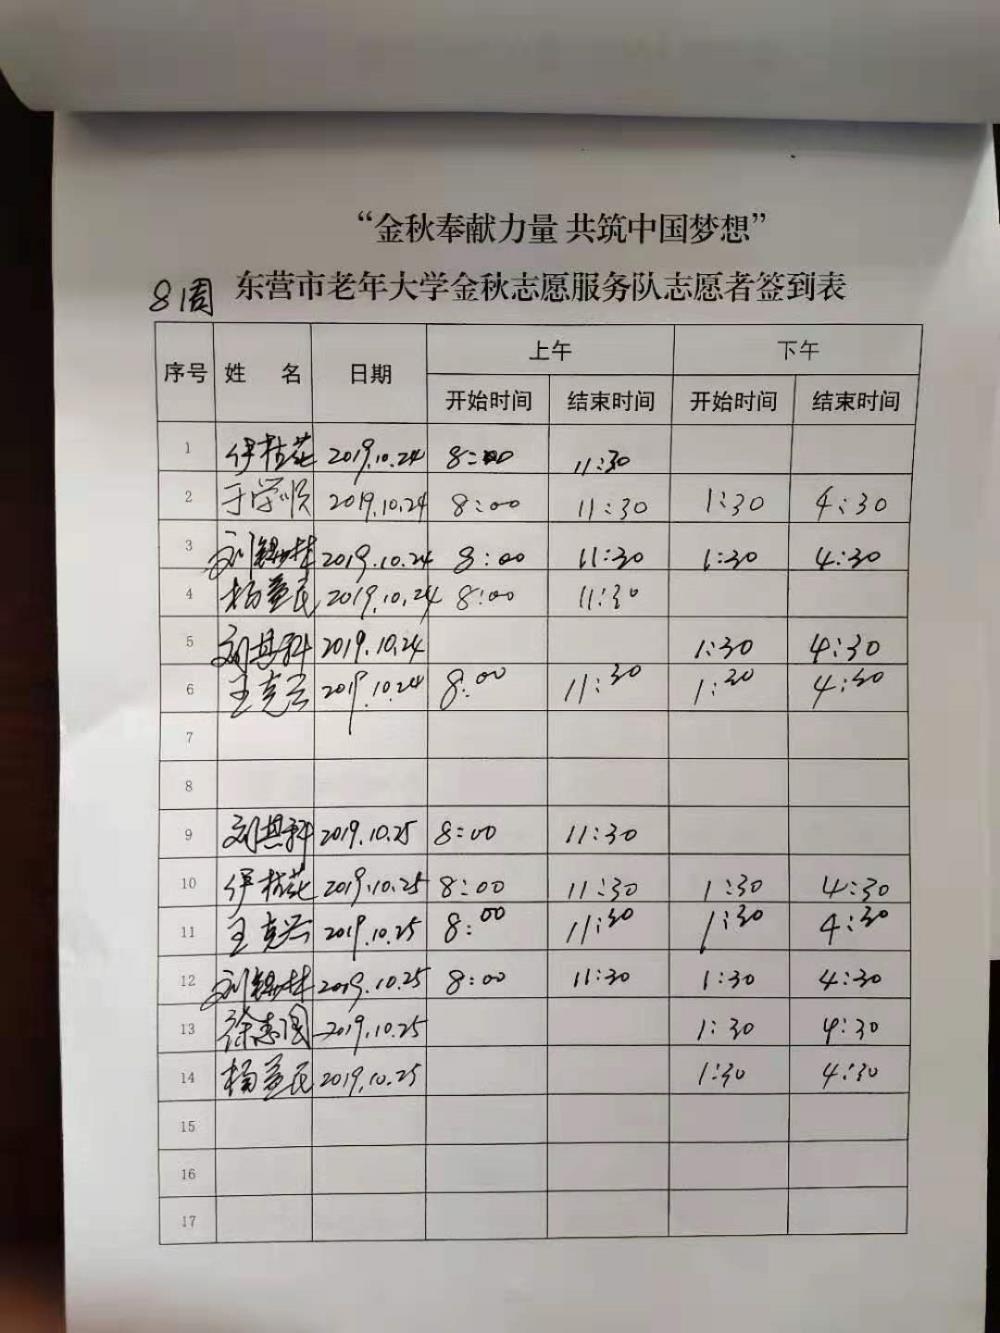 “金秋奉献力量 共筑中国梦想”
8周 东营市老年大学金秋志愿服务队志愿者签到表
序号 姓 名 日期 上午 下午
开始时间 结束时间 开始时间 结束时间
1 伊桂花 2019.10.24 8:00 11:30
2 于学顺 2019.10.24 8:00 11:30 1:30 4:30
3 刘锡林 2019.10.24 8:00 11:30 1:30 4:30
4 杨益民 2019.10.24 8:00 11:30
5 刘其科 2019.10.24 1:30 4:30
6 王克兴 2019.10.24 8:00 11:30 1:30 4:30
7
8
9 刘其科 2019.10.25 8:00 11:30
10 伊桂花 2019.10.25 8:00 11:30 1:30 4:30
11 王克兴 2019.10.25 8:00 11:30 1:30 4:30
12 刘锡林 2019.10.25 8:00 11:30 1:30 4:30
13 徐志国 2019.10.25 1:30 4:30
14 杨益民 2019.10.25 1:30 4:30
15
16
17